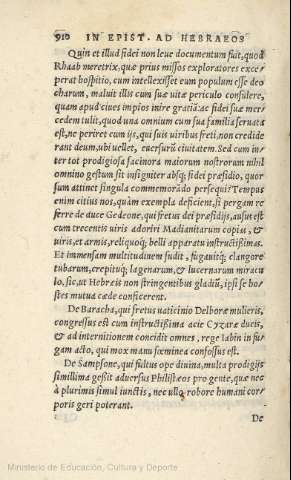 910 IN EPIST. AD HEBRAEOS
Quin et illud fidei non leue documentum fuit, quod
Rhaab meretrix, quæ prius missos exploratores exce
perat hospitio, cum intellexisset eum populum esse deo
charum, maluit illis cum suæ uitæ periculo consulere,
quam apud ciues impios inire gratiã: ac fidei suæ mer
cedem tulit, quod una omnium cum sua familia seruata
est, ne periret cum ijs, qui suis uiribus freti, non credide
rant deum, ubi uellet, euersurũ ciuitatem. Sed cum in
ter tot prodigiosa facinora maiorum nostrorum nihil
omnino gestum sit insigniter absq; fidei præsidio, quor
sum attinet singula commemorãdo persequi? Tempus
enim citius nos, quàm exempla deficient, si pergam re
ferre de duce Gedeone, qui fretus dei præsidijs, ausus est
cum trecentis uiris adoriri Madianitarum copias, &
uiris, et armis, reliquoq; belli apparatu instructissimas.
Et immensam multitudinem fudit, fugauitq; clangore
tubarum, crepituq; lagenarum, & lucernarum miracu
lo, sic, ut Hebreis non stringentibus gladiũ, ipsi se ho
stes mutua cæde conficerent.
De Baracha, qui fretus uaticinio Delboræ mulieris,
congressus est cum instructissima acie Cyzaræ ducis,
& ad internitionem concidit omnes, rege Iabin in fu
gam acto, qui mox manu fœminea confossus est.
De Sampsone, qui fultus ope diuina, multa prodigijs
simillima gessit aduersus Philisthæos pro gente, quæ nec
à plurimis simul iunctis, nec ullo robore humani cor
poris geri poterant.
De
Ministerio de Educación, Cultura y Deporte